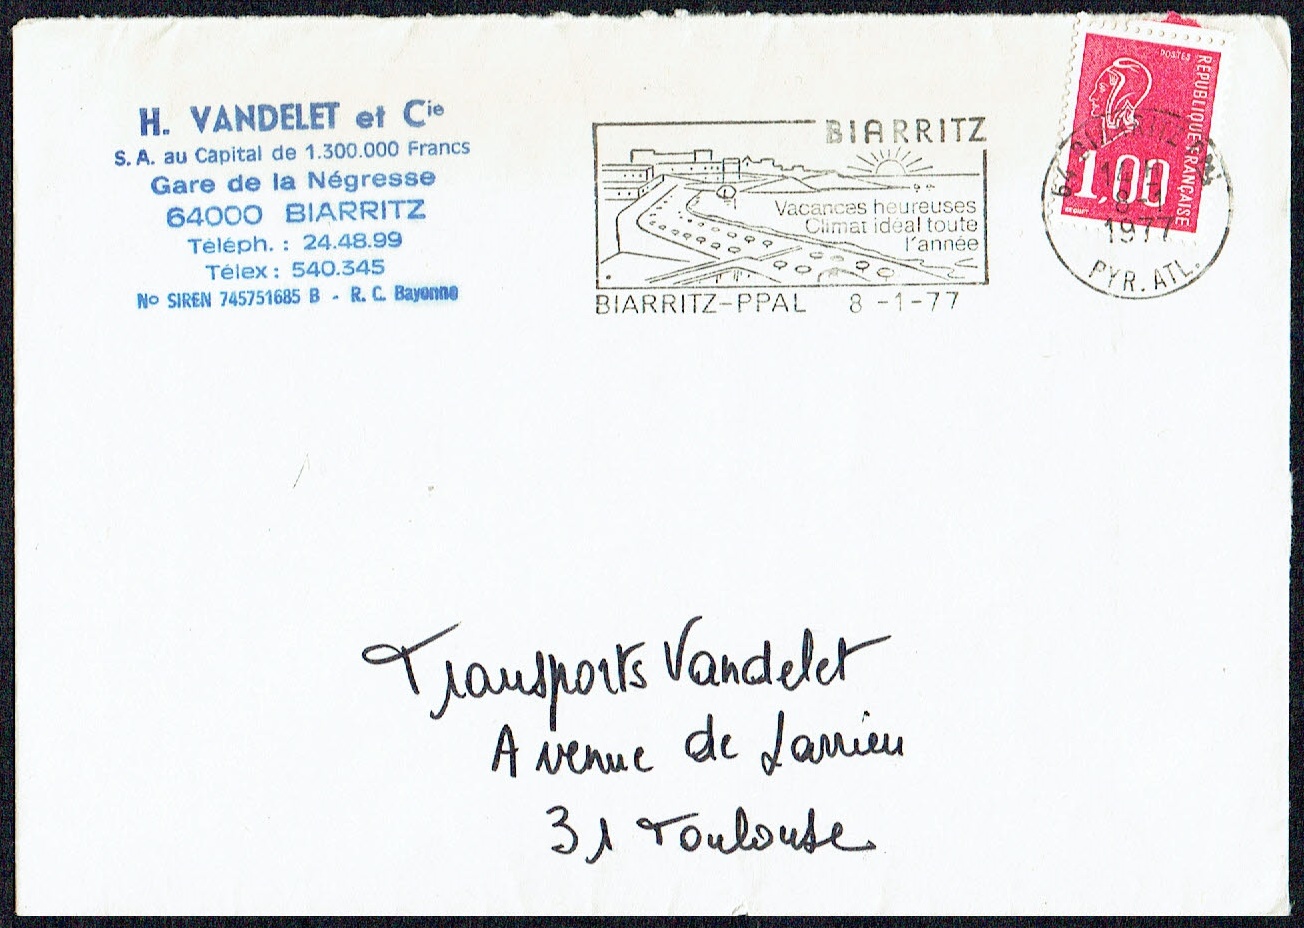 H. VANDELET et Cie
S. A. au Capital de 1.300.000 Francs
Gare de la Négresse
64000 BIARRITZ
Téléph. : 24.48.99
Télex : 540.345
No SIREN 745751685 B - R. C. Bayonne
BIARRITZ
Vacances heureuses
Climat idéal toute
l'année
BIARRITZ-PPAL 8 -1-77
POSTES
REPUBLIQUE FRANÇAISE
1,00
64
8-1
1977
PYR. ATL.
Transports Vandelet
Avenue de Larrieu
31 Toulouse